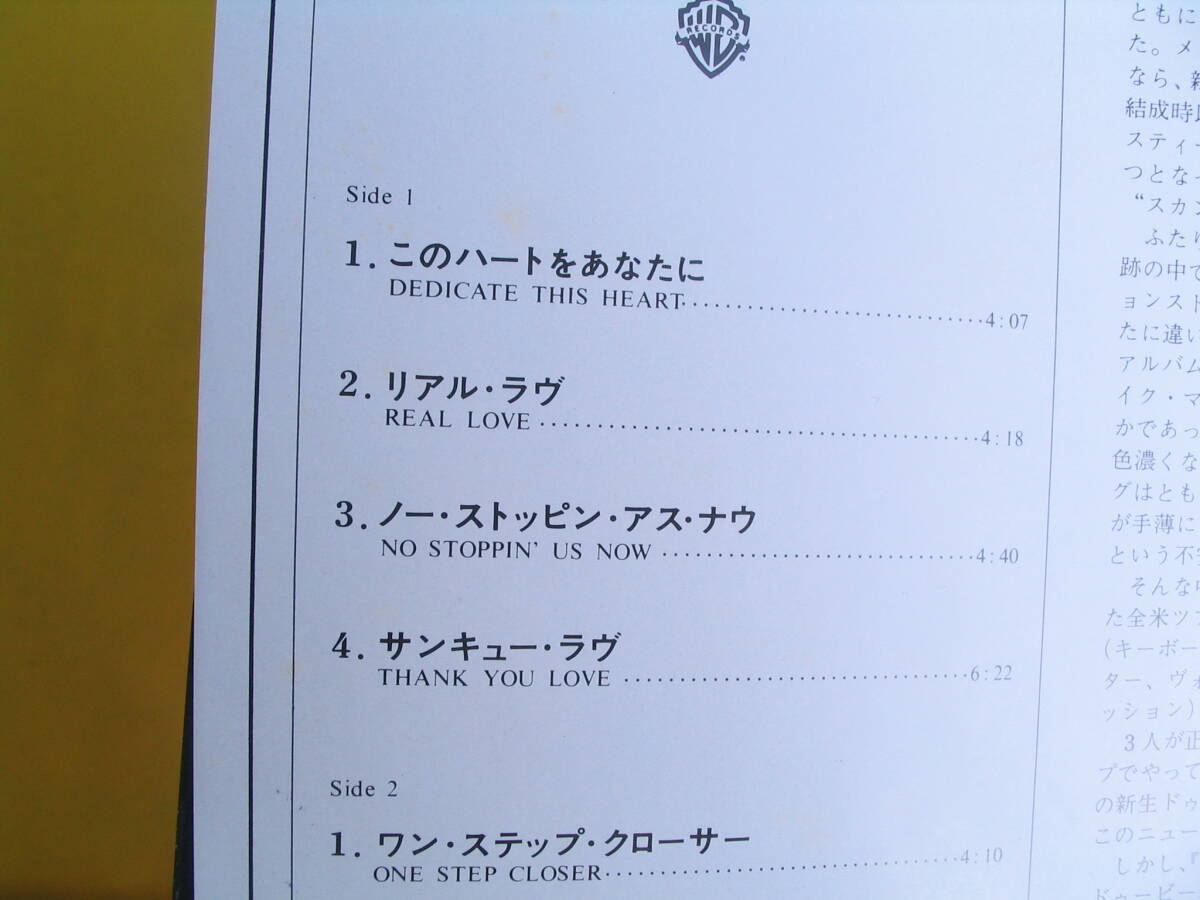 RECORDS
Side 1
1. このハートをあなたに
DEDICATE THIS HEART 4:07
2. リアル・ラヴ
REAL LOVE 4:18
3. ノー・ストッピン・アス・ナウ
NO STOPPIN' US NOW 4:40
4. サンキュー・ラヴ
THANK YOU LOVE 6:22
Side 2
1. ワン・ステップ・クローサー
ONE STEP CLOSER 4:10
ともに
た。メ
なら、新
結成時
スティー
つとな
“スカン
ふたり
跡の中で
ョンスト
たに違い
アルバム
イク・マ
かであっ
色濃くな
グはとも
が手薄に
という不
そんな
た全米ツ
(キーボー
ター、ヴォ
ッション)
3人が正
プでやって
の新生ドゥ
このニュー
しかし、『
ドゥービー